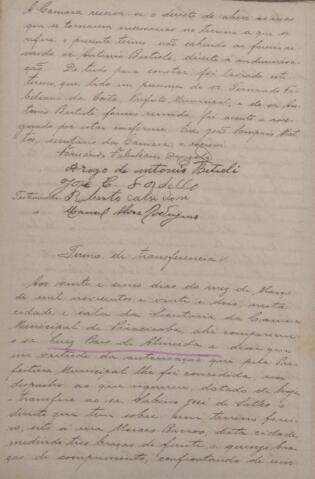 A Camara reserva-se o direito de abrir as ruas
que se tornarem necessarias no terreno a que se
refere o presente termo, não cabendo ao foreiro
sr. Antonio Bertiole, direito a indemni-
sação. De tudo para constar, foi lavrado este
termo, que, lido em presença do sr. Fernando Fe-
beliano da Costa, Prefeito Municipal, e do sr. An-
tonio Bertiole, foreiro remido, foi aceito e assi-
gnado por estar conforme. Eu, José Sampaio Mat-
tos, secretario da Camara, o escrevi.
Fernando Febeliano da Costa
Arogo de antonio
José C. Sordello
Testemunhas
Manoel Alves Rodrigues
Termo de transferencia
Aos vinte e cinco dias do mez de Março
de mil novecentos e vinte e dois, nesta
cidade e sala da Secretaria da Camara
Municipal de Piracicaba, ahi compareceu
o sr. Luiz Paes de Almeida e disse que,
em virtude da autorização que pela Pre-
feitura Municipal lhe foi concedida, no
despacho ao que requereu, datado de hoje,
transfere ao sr. Sabino José de o
direito que tem sobre um terreno forei-
ro, sito á rua Moraes Barros, desta cidade,
medindo tres braças de frente e quinze bra-
ças de comprimento, confrontando de um